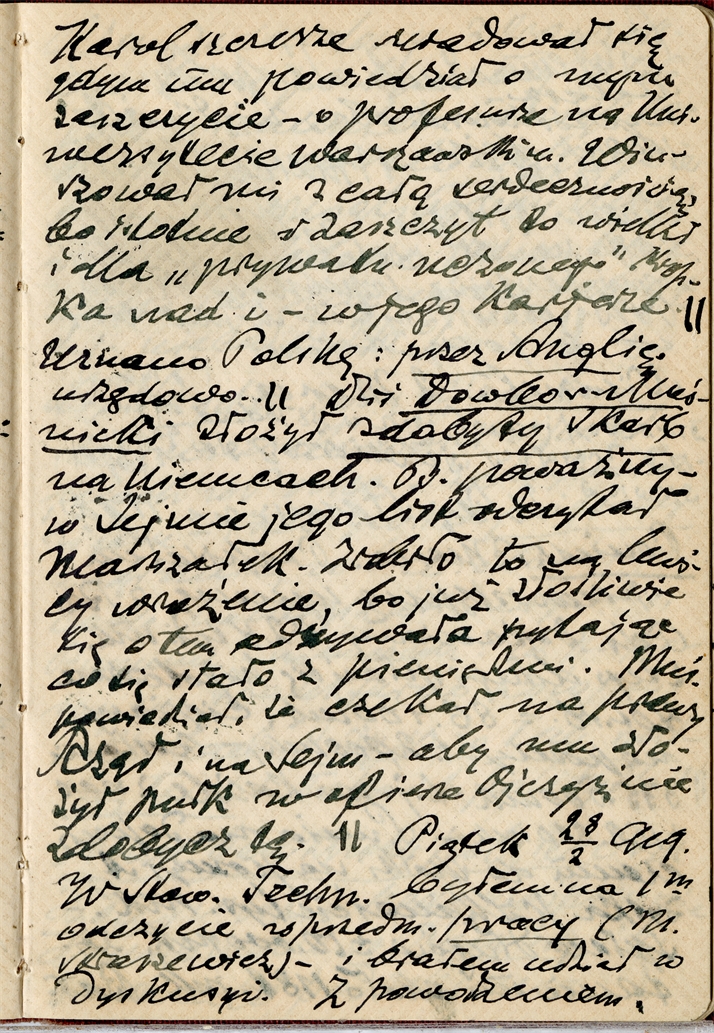 Karol szczerze uradował się
gdym mu powiedział o mym
zaszczycie – o profesurze na Uni-
wersytecie warszawskim. Win-
szował mi z całą serdecznością,
bo istotnie zaszczyt to wielki
i dla „prywatn. uczonego"
ka nad i – w jego karjerze. ||
Uznano Polskę: przez Anglię.
urzędowo. || dziś Dowbor-Muś-
nicki złożył zdobyty skarb
na Niemcach. B. poważny –
w Sejmie jego list odczytał
Marszałek. Zrobiło to na lewi-
cy wrażenie, bo już złośliwie
się o tem odzywała pytając
co się stało z pieniędzmi. Muś.
powiedział, że czekał na prawy
Rząd i na Sejm – aby mu zło-
żył pułk w ofierze Ojczyźnie
zdobycz tę. || Piątek 28/2 919.
W Stow. Techn. byłem na 1 m
odczycie w przedm. pracy (M.
Straszewicz) – i brałem udział w
Dyskusyi. Z powodzeniem.